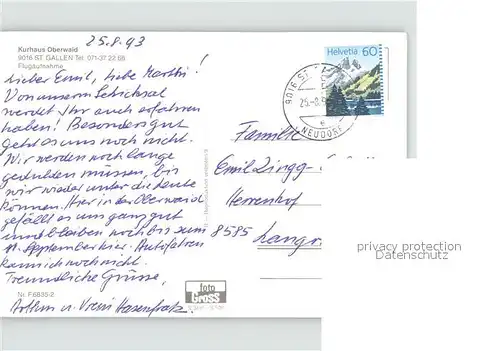 25.8.93
Kurhaus Oberwald
9016 ST. GALLEN Tel. 071-37 22 68
Flugaufnahme
Lieber Emil, liebe Marthi!
Von unserm Schicksal
werdet Ihr auch erfahren
haben! Besonders gut
geht es uns noch nicht.
Wir werden noch lange
gedulden müssen, bis
wir wieder unter die Leute
können. Hier in der Oberwaid
gefällt es uns ganz gut
und bleiben noch bis zum
11. September hier. Autofahren
kann ich noch nicht.
Freundliche Grüsse,
Arthur u. Vreni Hasenfratz
Nr. F6635-2
foto
Gross
Helvetia 60
9016 ST.
25.-8.
e
NEUDORF
Familie
Emil Lingg
Herrenhof
8585 Langr
privacy protection
Datenschutz